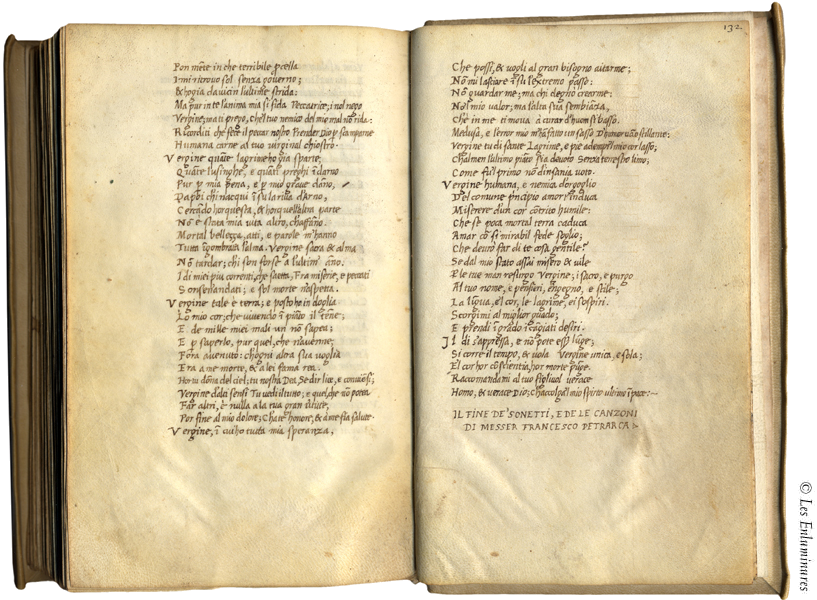 Pon mẽte in che terribile ꝓcella
I mi ritrovo sol senza governo;
& hogia da vicin l'ultime strida:
Ma pur in te l'anima mia si fida Peccatrice; i nol nego
Vergine; ma ti prego, che'l tuo nemico del mio mal nõ rida:
Ricorditi che fece il peccar nostro Prender Dio ꝑ scamparne
Humana carne al tuo virginal chiostro.
Vergine quãte lagrime ho gia sparte;
Quãte lusinghe, e quãti preghi ĩdarno
Pur ꝑ mia pena, e ꝑ mio grave dãno,
Da poi ch'i nacqui ĩ su la riva d'Arno,
Cercãdo hor questa, & hor quell'altra parte
Nõ è stata mia vita altro, ch'affãno.
Mortal bellezza, atti, e parole m'hanno
Tutta ĩgombrata l'alma. Vergine sacra & alma
Nõ tardar; ch'i son forse a l'ultim' ãno.
I di miei piu correnti, che saetta, Fra miserie, e peccati
Son sen andati; e sol morte n'aspetta.
Vergine tale è terra; e posto ha in doglia
Lo mio cor; che vivendo ĩ piãto il tẽne;
E de mille miei mali un nõ sapea;
E ꝑ saperlo, pur quel, che n'avenne,
Fora avenuto: ch'ogni altra sua voglia
Era a me morte, & a lei fama rea.
Hor tu dõna del ciel; tu nostra Dea, Se dir lice, e conviensi;
Vergine d'alti sensi Tu vedi il tutto; e quel, che nõ potea
Far altri, è nulla a la tua gran salute,
Por fine al mio dolore; Ch'a te honore, & a me fia salute.
Vergine, ĩ cui ho tutta mia speranza,
132
Che possi, & vogli al gran bisogno aitarme;
Nõ mi lasciare ĩ su l'extremo passo:
Nõ guardar me; ma chi degnò crearme:
Nò'l mio valor; ma l'alta sua sembiãza,
Che in me ti mova à curar d'huom sì basso.
Medusa, e l'error mio m'hã fatto un sasso D'humor vano stillante:
Vergine tu di sante Lagrime, e pie adempi'l mio cor lasso;
Ch'almen l'ultimo piãto sia devoto Senza terrestro limo;
Come fu'l primo nõ d'insania voto.
Vergine humana, e nemica d'orgoglio
Del comune prĩcipio amor t'induca
Miserere d'un cor cõtrito humile:
Che se poca mortal terra caduca
Amar cõ sì mirabil fede soglio;
Che devrò far di te cosa gentile?
Se dal mio stato assai misero & vile
P le tue man resurgo Vergine; i sacro, e purgo
Al tuo nome, e pensieri, engegno, e stile;
La lĩgua, e'l cor, le lagrime, e i sospiri.
Scorgimi al miglior guado;
E prendi ĩ grado i cãgiati desiri.
Il di s'appressa, e nõ pote esser lũge;
Si corre il tempo, & vola Vergine unica, e sola;
E'l cor hor cõscientia, hor morte pũge.
Raccomandami al tuo figliuol verace
Homo, & verace Dio; Ch'accolga'l mio spirto ultimo ĩ pace:~
IL FINE DE' SONETTI, E DE LE CANZONI
DI MESSER FRANCESCO PETRARCA
© Les Enluminures